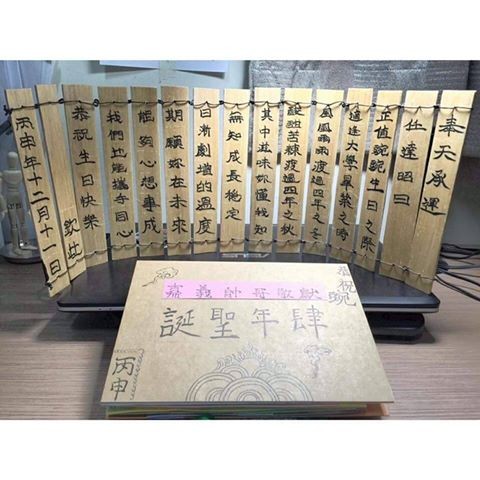 奉天承運
仕達昭曰
正值生日之際
適逢大學畢業之時
風風雨雨渡過四年之冬
酸甜苦辣渡過四年之秋
其中滋味妳懂我知
無知成長穩定
日漸劇增的溫度
期願妳在未來
能夠心想事成
我們也能攜手同心
恭祝生日快樂
欽此
丙申年十二月十一日
恭祝
嘉義帥哥敬獻
肆年聖誕
丙申